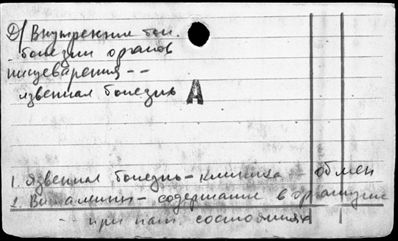 Д/ Внутренние бол.
болезни органов
пищеварения --
язвенная болезнь
А
1. Язвенная болезнь - клиника - обмен
2. Витамины - содержание в организме
- при пат. состояниях